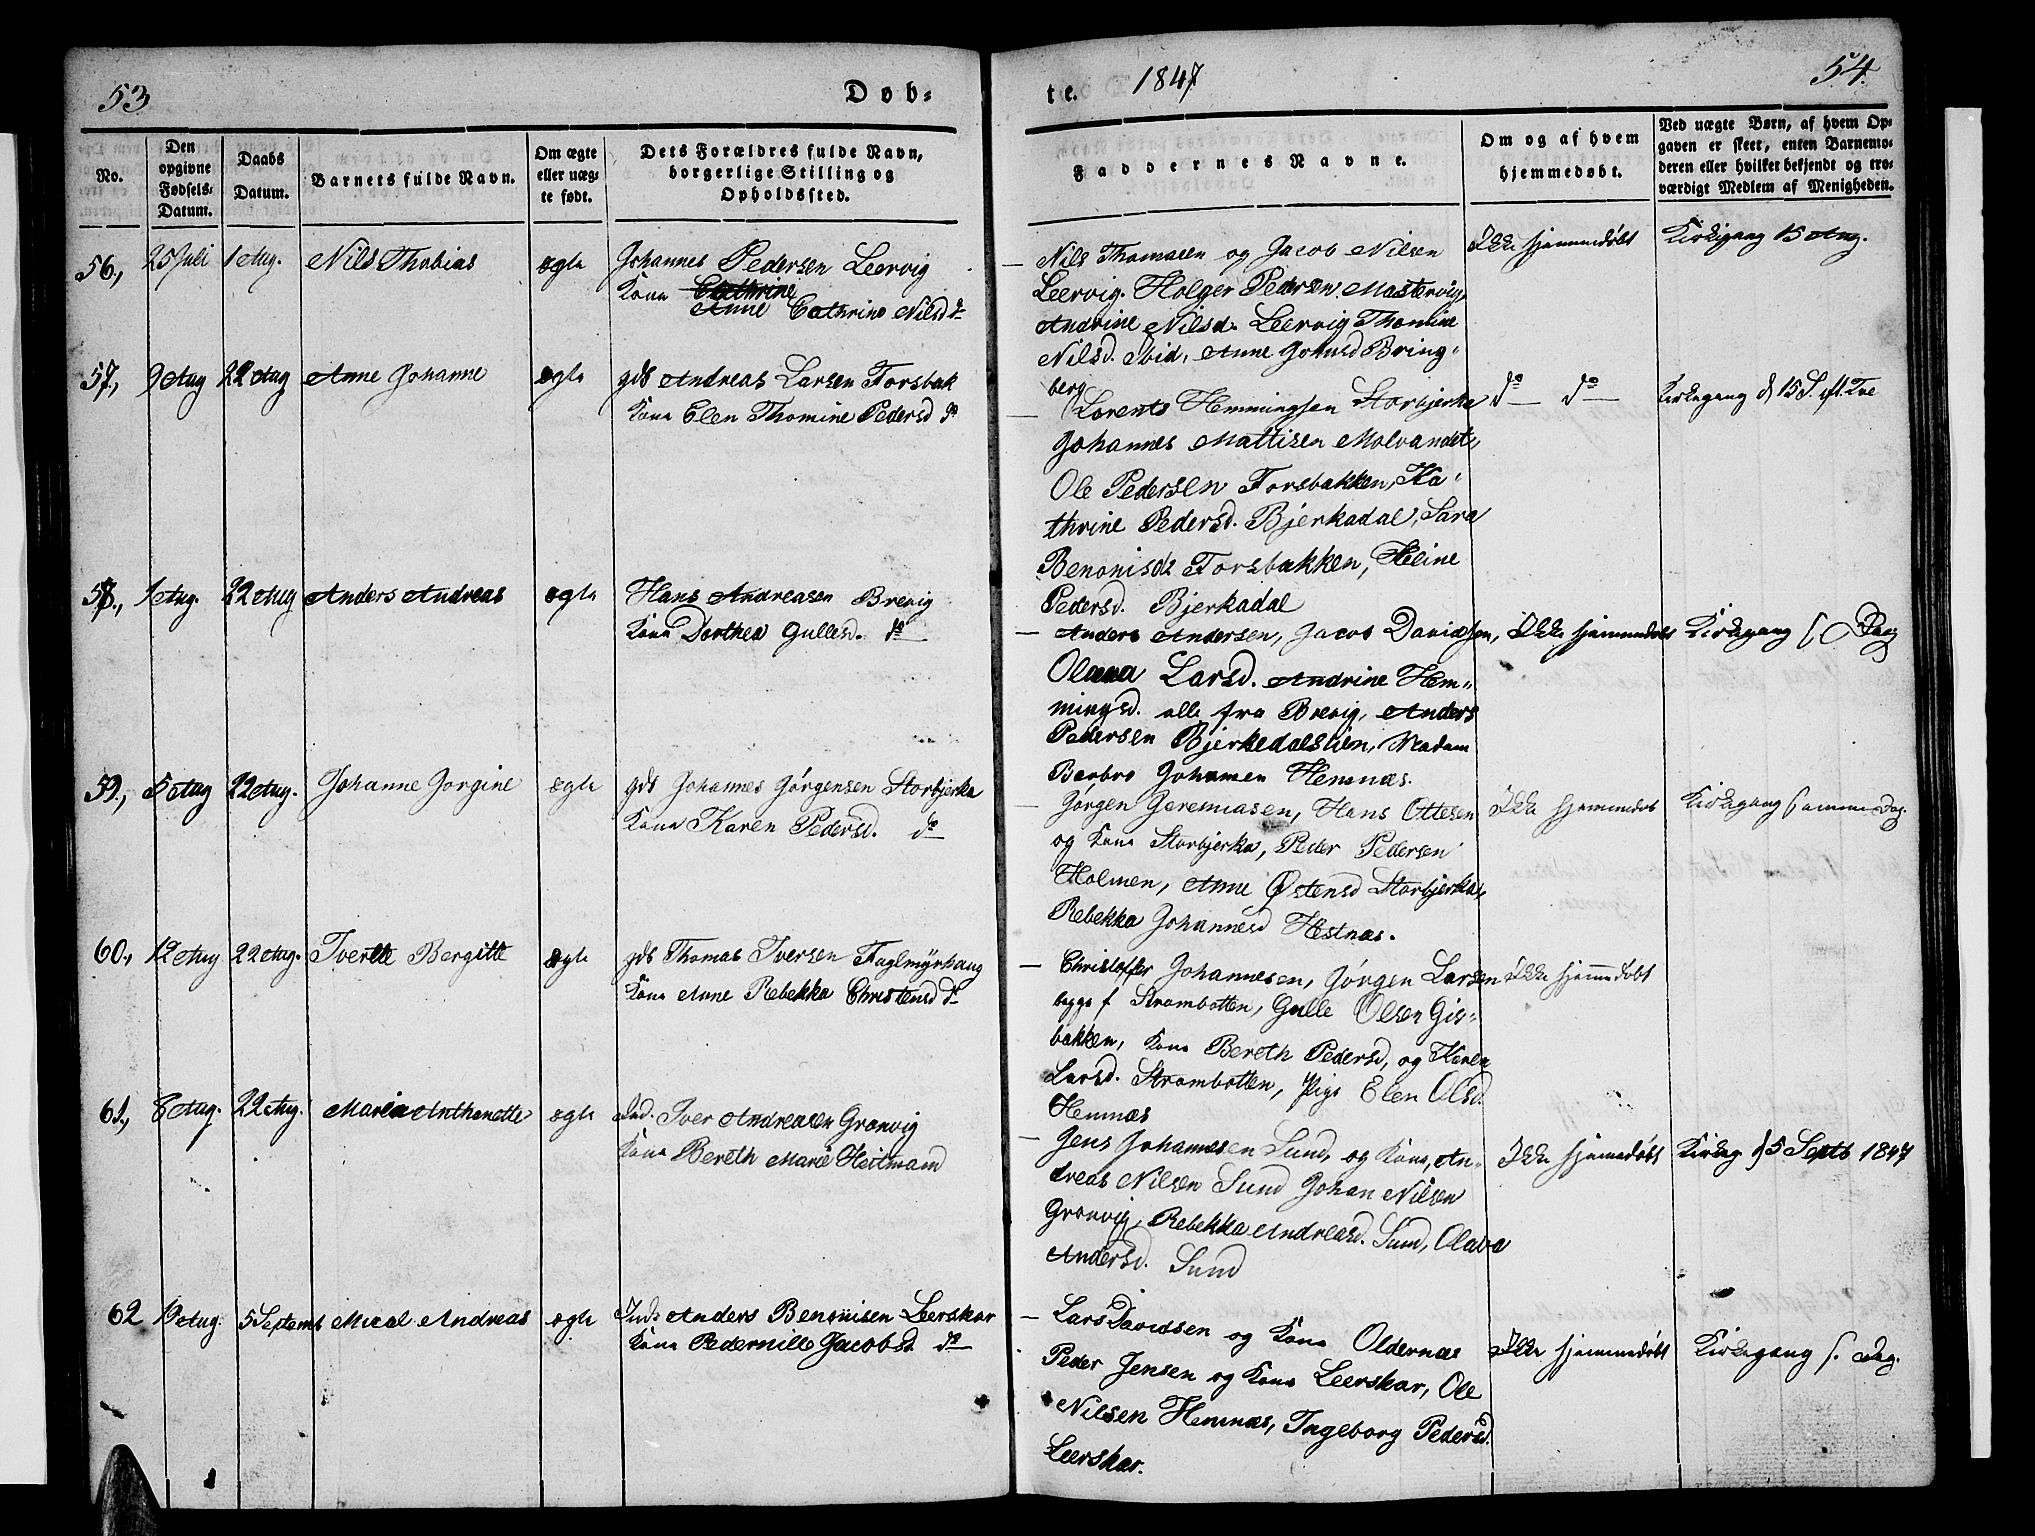 53
Døb-
No.
Den opgivne Fødsels-Datum.
Daabs Datum.
Barnets fulde Navn.
Om ægte eller uægte født.
Dets Forældres fulde Navn, borgerlige Stilling og Opholdssted.
56., 25 Juli 1 Aug. Nils Thobias ægte Johannes Pedersen Leervig
Kone Cathrine
Anne Cathrine Nilsd do
57., 9 Aug 22 Aug Anne Johanne ægte gds Andreas Larsen Forsbak
Kone Elen Thomine Pedersd do
58., 1 Aug. 22 Aug Anders Andreas ægte Hans Andreasen Brevig
Kone Dorthea Gullesd. do
59., 5 Aug 22 Aug. Johanne Jorgine ægte gds Johannes Jörgensen Storbjerka
Kone Karen Pedersd. do
60., 12 Aug 22 Aug. Iverette Bergitte ægte gds Thomas Iversen Fuglmyrhaug
Kone Anne Rebekka Christensd do
61., 8 Aug. 22 Aug. Maria Anthonette ægte Ind. Iver Andreasen Granvig
Kone Bereth Marie Heitmand
62 19 Aug. 5 Septemb Mical Andreas ægte Inds Anders Benonisen Leerskar
Kone Pedernille Jacobsd do
te. 1847
54.
Faddernes Navne.
Om og af hvem hjemmedøbt.
Ved uægte Børn, af hvem Opgaven er skeet, enten Barnemoderen eller hvilket bekjendt og troværdigt Medlem af Menigheden.
— Nils Thomasen og Jacob Nilsen Ikke hjemmedøbt Kirkegang 15 Aug.
Leervig. Holger Pedersen Mastervig,
Andrine Nilsd. Leervig Thomine
Nilsd. Ibid, Anne Johnsd Bring-
berg
— Lorents Hemmingsen Storbjerka do do Kirkegang d 15 S. eft. Tre
Johannes Mattisen Molvandet,
Ole Pedersen Forsbakken, Ka-
thrine Pedersd. Bjerkadal, Sara
Benonisdr Forsbakken, Heline
Pedersd. Bjerkadal
— Anders Andersen, Jacob Davidsen, Ikke hjemmedøbt Kirkegang s Dag
Olava Larsd. Andrine Hem-
mingsd. alle fra Brevig, Anders
Pedersen Bjerkedalslien, Madam
Barbro Johansen Hemnæs.
— Jørgen Jeremiasen, Hans Ottesen Ikke hjemmedøb Kirkegang samme Dag.
og Kone Storbjerka, Peder Pedersen
Holmen, Anne Østensd Storbjerka,
Rebekka Johannesd Hestnæs.
— Christoffer Johannesen, Jörgen Larsen Ikke hjemmedøbt
begge f Strambotten, Gulle Olsen Gis-
bakken, Kone Bereth Pedersd, og Karen
Larsd. Strambotten, Pige Elen Olsd.
Hemnæs
— Jens Johannesen Sund, og Kone, An- Ikke hjemmedøbt Kirkeg d 5 Septb 1847
dreas Nilsen Sund Johan Nilsen
Granvig, Rebekka Andreasd. Sund, Olava
Andersd. Sund
— Lars Davidsen og Kone Oldernæs Ikke hjemmedøbt Kirkegang s. Dag.
Peder Jensen og Kone Leerskar, Ole
Nilsen Hemnæs, Ingeborg Pedersd.
Leerskar.